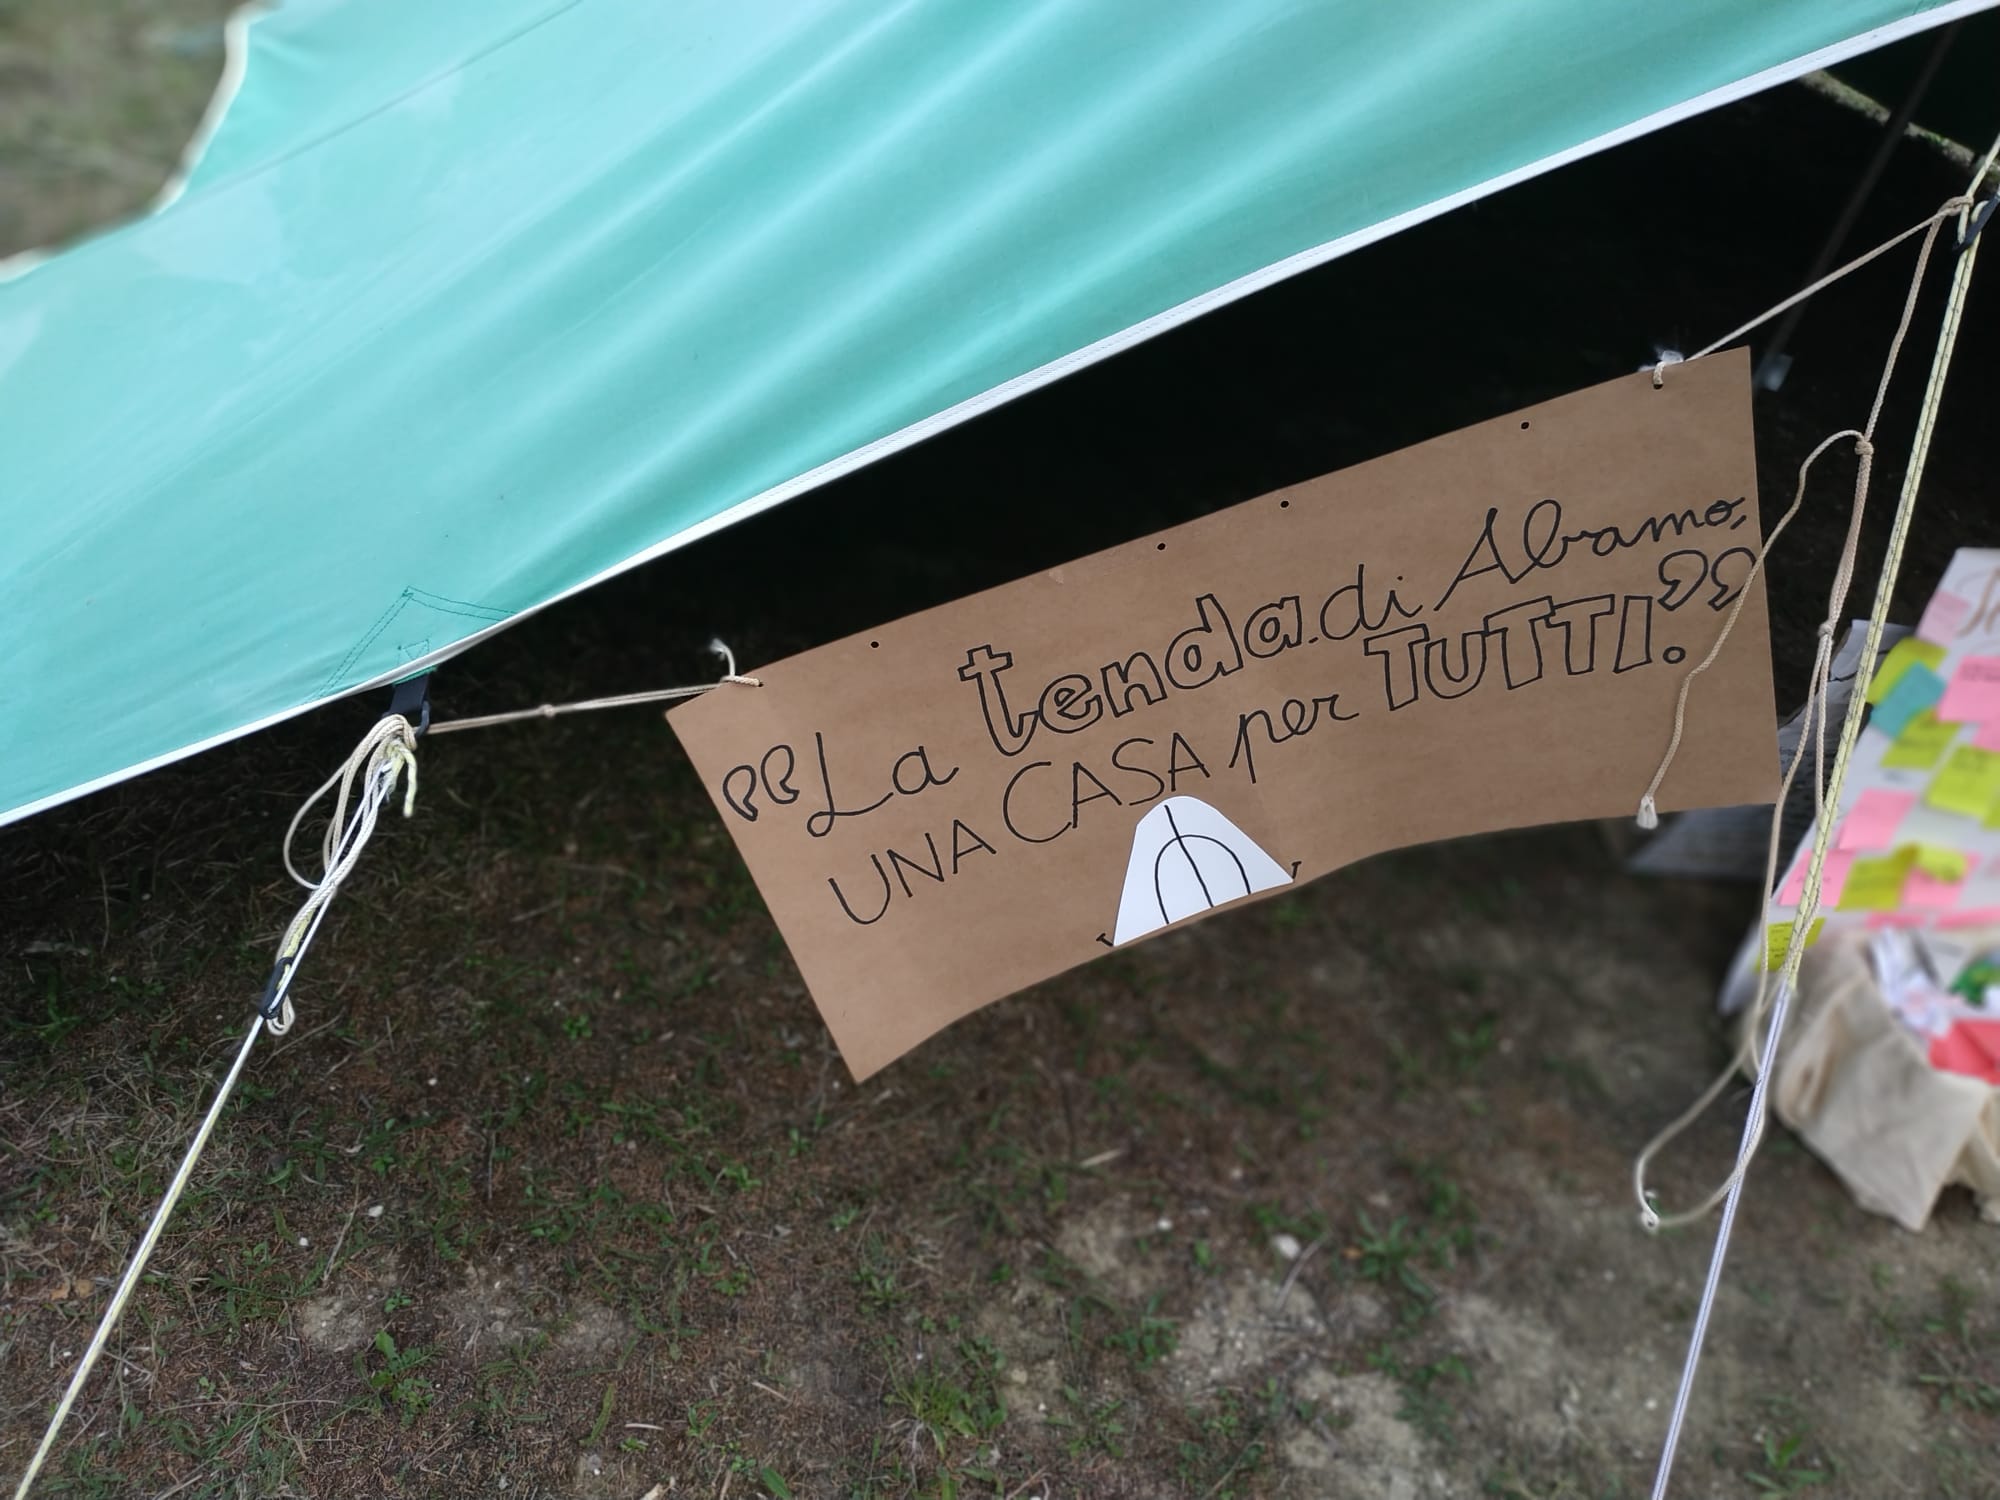 “La tenda di Abramo,
UNA CASA per TUTTI.”